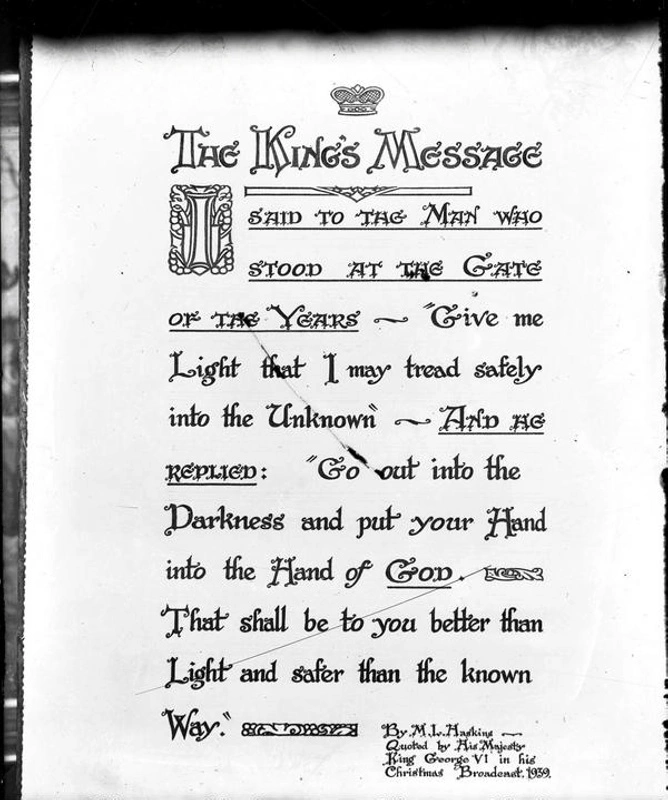 The King's Message
I said to the Man who
stood at the Gate
of the Years ~ "Give me
Light that I may tread safely
into the Unknown" ~ And he
replied: "Go out into the
Darkness and put your Hand
into the Hand of God.
That shall be to you better than
Light and safer than the known
Way."
By M. L. Haskins —
Quoted by His Majesty
King George VI in his
Christmas Broadcast. 1939.